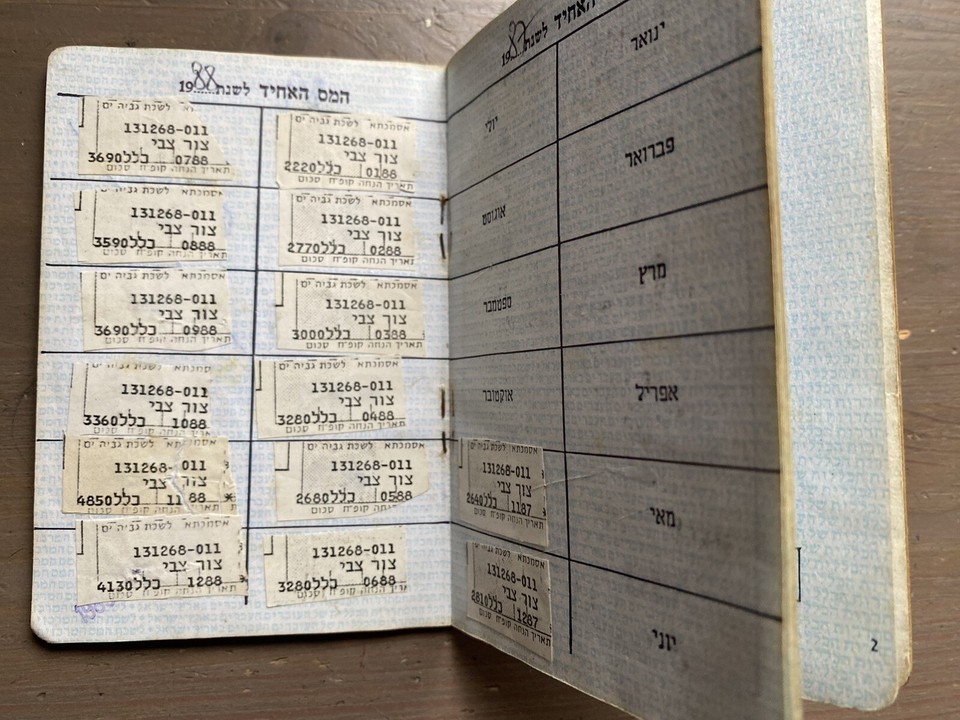 המס האחיד לשנת 1988
אסמכתא לשכת גביה ים
131268-011
צור צבי
0188 כלל 2220
תאריך הנחה קופ״ח סכום
אסמכתא לשכת גביה ים
131268-011
צור צבי
0288 כלל 2770
תאריך הנחה קופ״ח סכום
אסמכתא לשכת גביה ים
131268-011
צור צבי
0388 כלל 3000
תאריך הנחה קופ״ח סכום
אסמכתא לשכת גביה ים
131268-011
צור צבי
0488 כלל 3280
תאריך הנחה קופ״ח סכום
אסמכתא לשכת גביה ים
131268-011
צור צבי
0588 כלל 2680
תאריך הנחה קופ״ח סכום
131268-011
צור צבי
0688 כלל 3280
תאריך הנחה קופ״ח סכום
לשכת גביה ים
131268-011
צור צבי
0788 כלל 3690
תאריך הנחה קופ״ח סכום
אסמכתא לשכת גביה ים
131268-011
צור צבי
0888 כלל 3590
תאריך הנחה קופ״ח סכום
אסמכתא לשכת גביה ים
131268-011
צור צבי
0988 כלל 3690
תאריך הנחה קופ״ח סכום
אסמכתא לשכת גביה ים
131268-011
צור צבי
1088 כלל 3360
תאריך הנחה קופ״ח סכום
לשכת גביה ים
131268-011
צור צבי
1188 כלל 4850
תאריך הנחה קופ״ח סכום
אסמכתא לשכת גביה ים
131268-011
צור צבי
1288 כלל 4130 *
תאריך הנחה קופ״ח סכום
האחיד לשנת 1987
ינואר
פברואר
מרץ
אפריל
מאי
יוני
יולי
אוגוסט
ספטמבר
אוקטובר
אסמכתא לשכת גביה ים
131268-011
צור צבי
1187 כלל 2640
תאריך הנחה קופ״ח סכום
אסמכתא לשכת גביה ים
131268-011
צור צבי
1287 כלל 2810
תאריך הנחה קופ״ח סכום
2